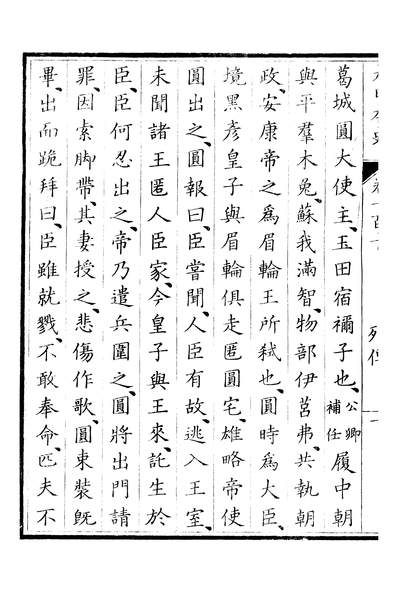 葛城圓大使主、玉田宿禰子也、公卿補任履中朝
與平羣木兔、蘇我滿智、物部伊莒弗、共執朝
政、安康帝之爲眉輪王所弑也、圓時爲大臣、
境黑彥皇子與眉輪俱走匿圓宅、雄略帝使
圓出之、圓報曰、臣嘗聞、人臣有故、逃入王室、
未聞諸王匿人臣家、今皇子與王來、託生於
臣、臣何忍出之、帝乃遣兵圍之、圓將出門請
罪、因索脚帶、其妻授之、悲傷作歌、圓束裝旣
畢、出而跪拜曰、臣雖就戮、不敢奉命、匹夫不